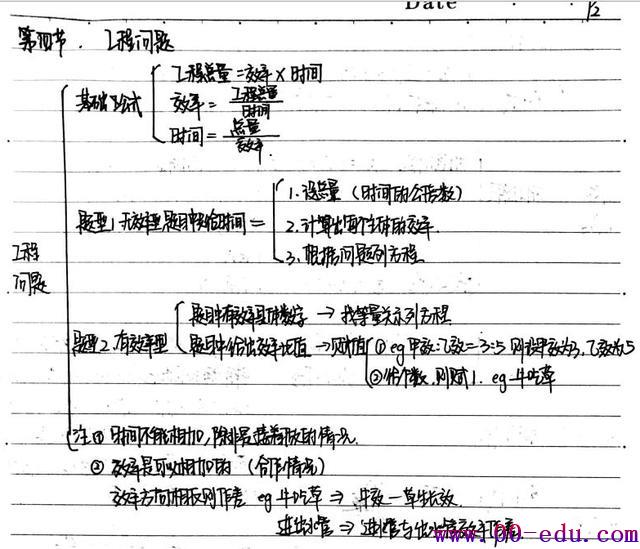 Date
1/2
第四节. 工程问题
工程问题
基础公式
工程总量=效率×时间
效率=工程总量/时间
时间=总量/效率
题型1.无效率型,题目中只给时间=
1.设总量(时间的公倍数)
2.计算出每个主体的效率.
3.根据问题列方程.
题型2.有效率型
题目中有效率具体数字→找等量关系列方程
题目中给出效率比值→赋值
① eg 甲效:乙效=3:5 则设甲效为3,乙效为5
②给个数,则赋1. eg 牛吃草
注① 时间不能相加,除非是接着做的情况.
② 效率是可以相加的(合作情况)
效率方向相反则作差 eg 牛吃草⇒牛效-草生长效.
进出水管⇒进水管与出水管效率作差
www.00-edu.com